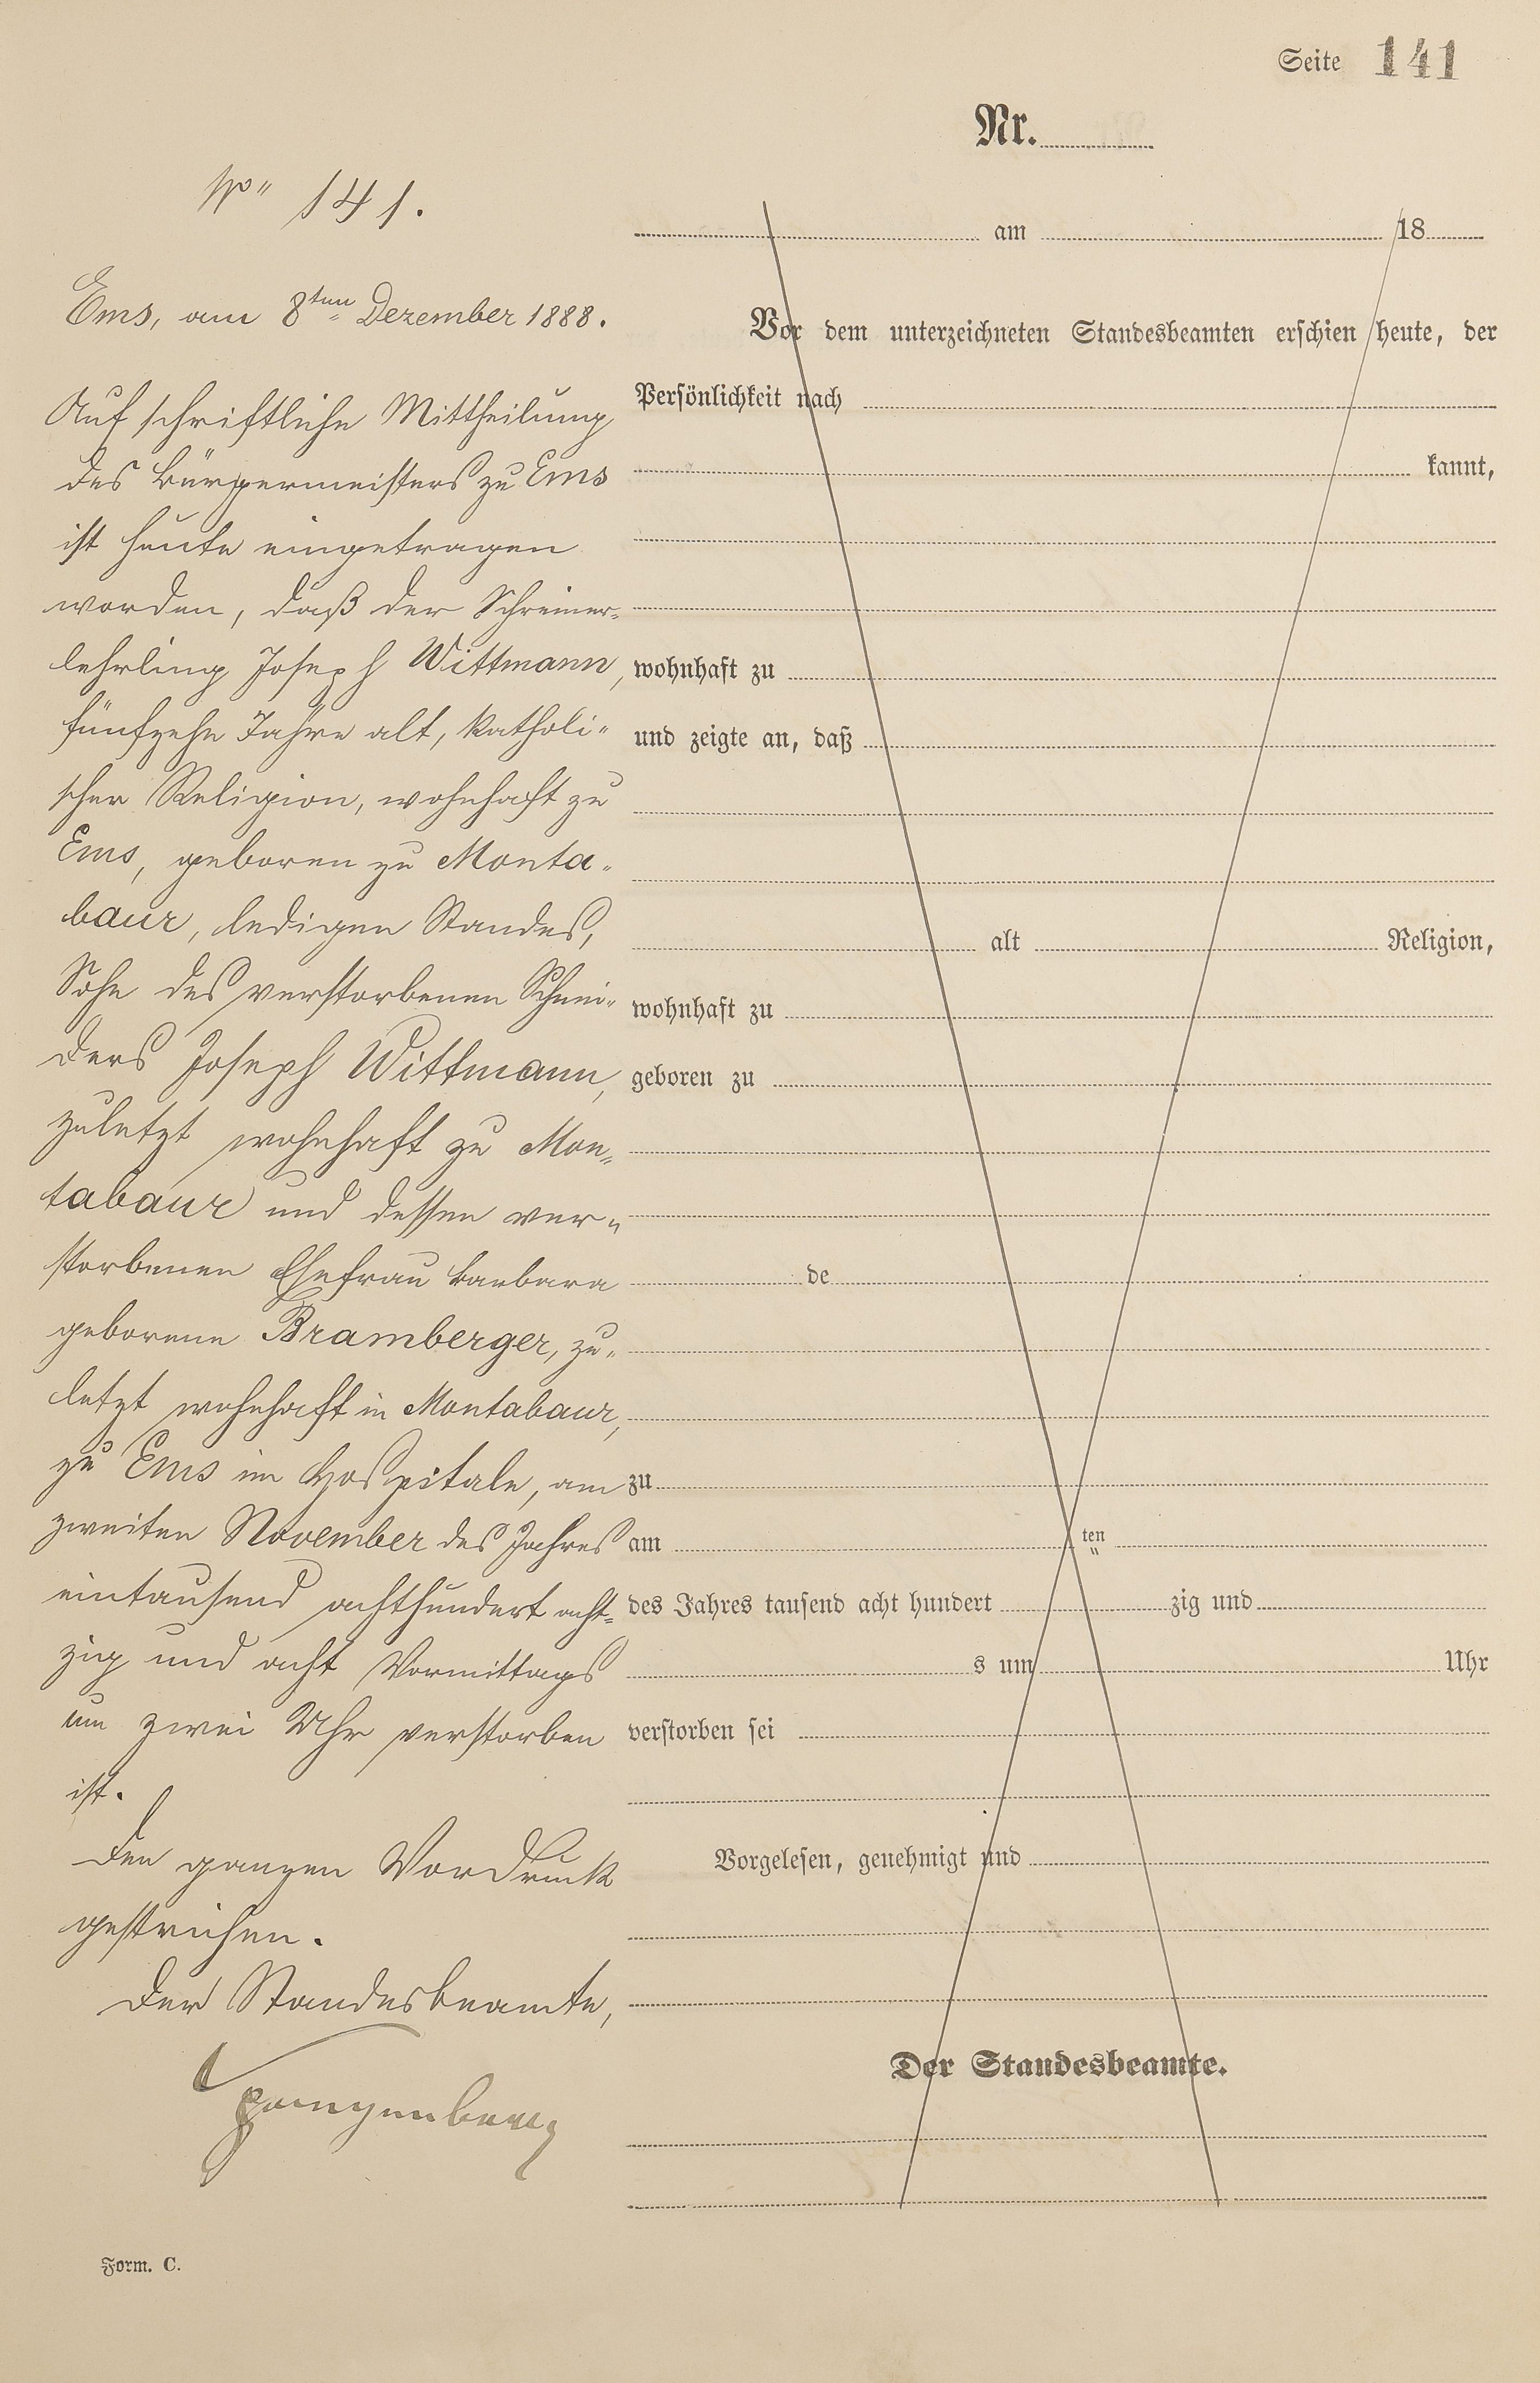 Seite 141
Nr.
No 141.
Ems, am 8ten Dezember 1888.
Auf schriftliche Mittheilung
des Bürgermeisters zu Ems
ist heute eingetragen
worden, daß der Schreiner-
lehrling Joseph Wittmann,
fünfzehn Jahre alt, katholi-
scher Religion, wohnhaft zu
Ems, geboren zu Monta-
baur, ledigen Standes,
Sohn des verstorbenen Schnei-
ders Joseph Wittmann,
zuletzt wohnhaft zu Mon-
tabaur und dessen ver-
storbenen Ehefrau Barbara
geborene Bramberger, zu-
letzt wohnhaft in Montabaur,
zu Ems im Hospitale, am
zweiten November des Jahres
eintausend achthundert acht-
zig und acht Vormittags
um zwei Uhr verstorben
ist.
Den ganzen Vordruck
gestrichen.
Der Standesbeamte,
am 18
Vor dem unterzeichneten Standesbeamten erschien heute, der
Persönlichkeit nach
kannt,
wohnhaft zu
und zeigte an, daß
alt Religion,
wohnhaft zu
geboren zu
de
zu
am ten
des Jahres tausend acht hundert zig und
s um Uhr
verstorben sei
Vorgelesen, genehmigt und
Der Standesbeamte.
Form. C.